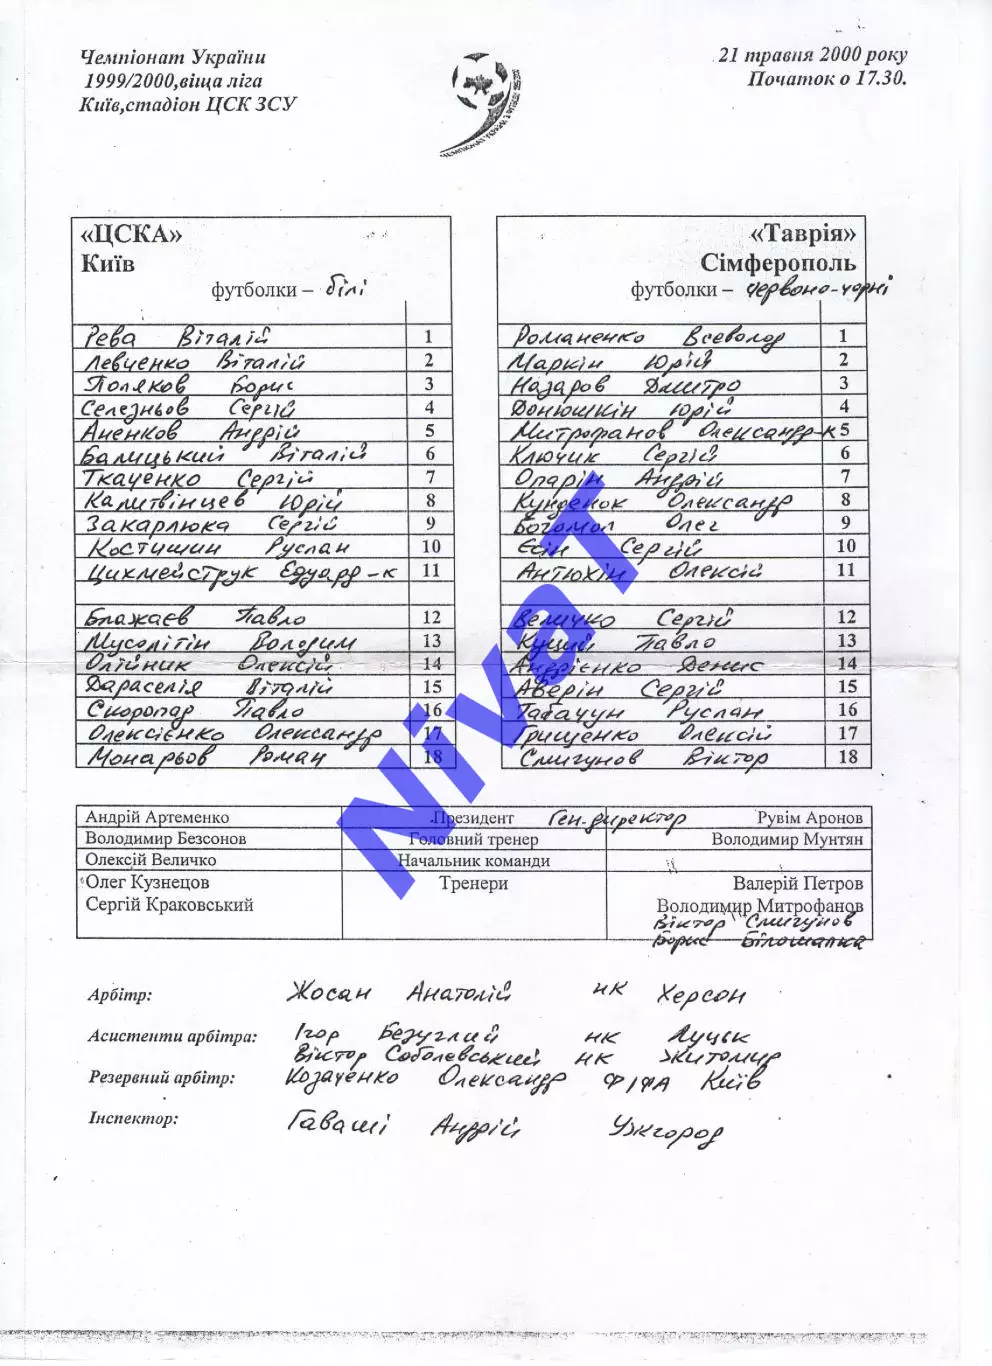 Чемпіонат України
1999/2000,віща ліга
Київ,стадіон ЦСК ЗСУ
21 травня 2000 року
Початок о 17.30.
«ЦСКА»
Київ
футболки – білі
Рева Віталій 1
Левченко Віталій 2
Поляков Борис 3
Селезньов Сергій 4
Аненков Андрій 5
Балицький Віталій 6
Ткаченко Сергій 7
Калитвінцев Юрій 8
Закарлюка Сергій 9
Костишин Руслан 10
Цихмейструк Едуард-к 11
Блажаєв Павло 12
Мусолітін Володим 13
Олійник Олексій 14
Дараселія Віталій 15
Скоропад Павло 16
Олексієнко Олександр 17
Монарьов Роман 18
«Таврія»
Сімферополь
футболки – червоно-чорні
Романенко Всеволод 1
Маркін Юрій 2
Назаров Дмитро 3
Донюшкін Юрій 4
Митрофанов Олександр-к 5
Ключик Сергій 6
Опарін Андрій 7
Кунденок Олександр 8
Богомол Олег 9
Єсін Сергій 10
Антюхін Олексій 11
Величко Сергій 12
Куций Павло 13
Андрієнко Денис 14
Аверін Сергій 15
Табачун Руслан 16
Грищенко Олексій 17
Смигунов Віктор 18
Андрій Артеменко Президент Ген.директор Рувім Аронов
Володимир Безсонов Головний тренер Володимир Мунтян
Олексій Величко Начальник команди
Олег Кузнецов Тренери Валерій Петров
Сергій Краковський Володимир Митрофанов
Віктор Смигунов
Борис Білошапка
Арбітр: Жосан Анатолій НК Херсон
Асистенти арбітра: Ігор Безуглий НК Луцьк
Віктор Соболевський НК Житомир
Резервний арбітр: Козаченко Олександр ФІФА Київ
Інспектор: Гаваші Андрій Ужгород
NivaT